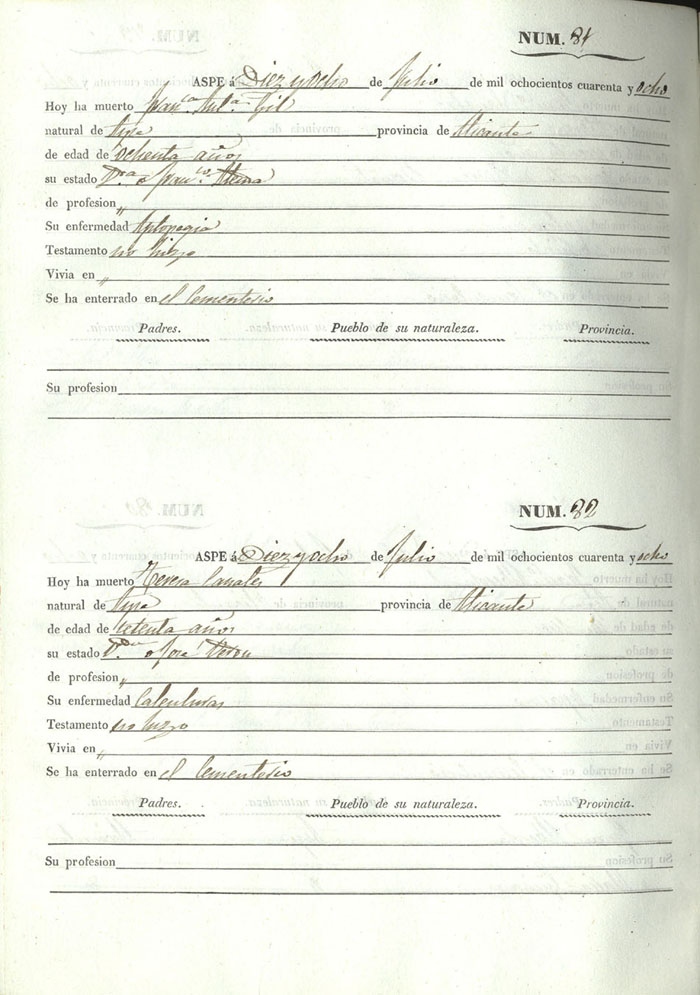 NUM. 81
ASPE á Diez y ocho de Julio de mil ochocientos cuarenta y ocho
Hoy ha muerto Fran.ca Gil
natural de Aspe provincia de Alicante
de edad de ochenta años
su estado V.da de Fran.co
de profesion „
Su enfermedad Aplopegia
Testamento no hizo
Vivia en „
Se ha enterrado en el Cementerio
Padres. Pueblo de su naturaleza. Provincia.
Su profesion
NUM. 82
ASPE á Diez y ocho de Julio de mil ochocientos cuarenta y ocho
Hoy ha muerto Teresa Canales
natural de Aspe provincia de Alicante
de edad de setenta años
su estado V.da de Jose
de profesion „
Su enfermedad Calenturas
Testamento no hizo
Vivia en „
Se ha enterrado en el Cementerio
Padres. Pueblo de su naturaleza. Provincia.
Su profesion